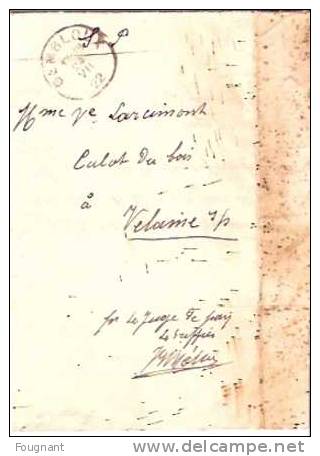 GEMBLOUX
22
S P
Mme Ve Larcimont
Culot du bois
à
Velaine s/s
pr le Juge de paix
le Greffier
Fougnant
http://www.delcampe.net